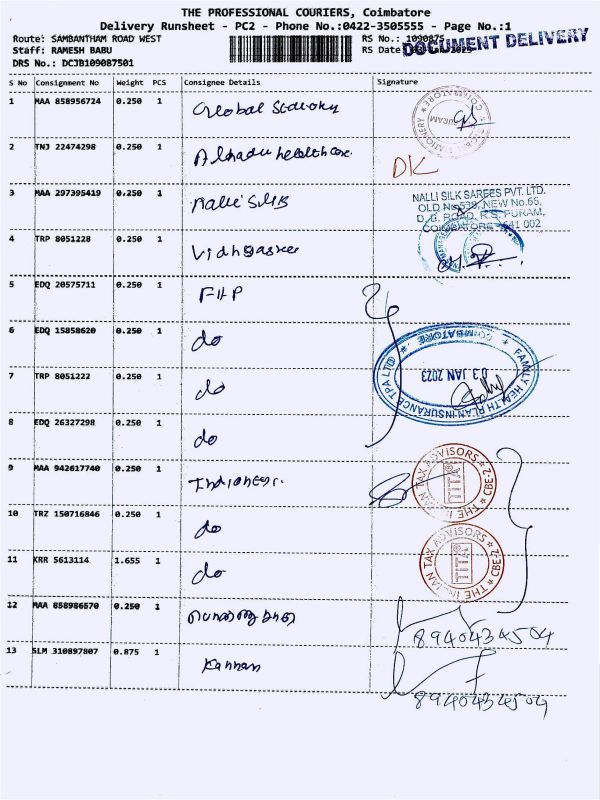 THE PROFESSIONAL COURIERS, Coimbatore
Delivery Runsheet - PC2 - Phone No.:0422-3505555 - Page No.:1
Route: SAMBANTHAM ROAD WEST
RS No.: 1090875
Staff: RAMESH BABU
RS Date
DOCUMENT DELIVERY
DRS No.: DCJB109087501
S No Consignment No Weight PCS Consignee Details Signature
1 MAA 858956724 0.250 1 Global
2 TNJ 22474298 0.250 1 healthcare DK
3 MAA 297395419 0.250 1 Nalli Silks
NALLI SILK SAREES PVT. LTD.
OLD No.539, NEW No.66,
D. B. ROAD, R.S. PURAM,
COIMBATORE - 641 002
4 TRP 8051228 0.250 1
5 EDQ 20575711 0.250 1 FHP
6 EDQ 15858620 0.250 1 do
FAMILY HEALTH PLAN INSURANCE TPA LTD
COIMBATORE
03 JAN 2023
7 TRP 8051222 0.250 1 do
8 EDQ 26327298 0.250 1 do
9 MAA 942617740 0.250 1
THE INDIAN TAX ADVISORS * CBE-2 *
TITA
10 TRZ 150716846 0.250 1 do
11 KRR 5613114 1.655 1 do
THE INDIAN TAX ADVISORS * CBE-2 *
TITA
12 MAA 858986570 0.250 1
8940434504
13 SLM 310897807 0.875 1 Kannan
8940434504